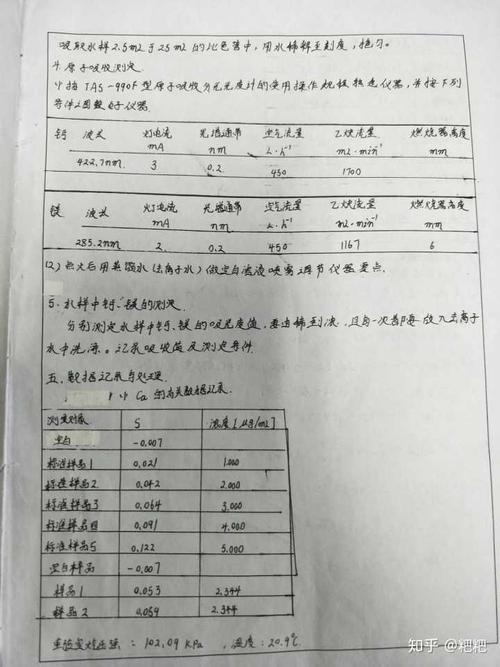 吸取水样2.5mL于25mL的比色管中,用水稀释至刻度,摇匀。
4. 原子吸收测定
(1) 按TAS-990F型原子吸收分光光度计的使用操作规程热选仪器,并按下列
条件工图数好仪器.
钙 波长 灯电流 光谱通带 空气流量 乙炔流量 燃烧器高度
mA nm L·h⁻¹ mL·min⁻¹ mm
422.7nm 3 0.2 450 1700
镁 波长 灯电流 光谱通带 空气流量 乙炔流量 燃烧器高度
mA nm L·h⁻¹ mL·min⁻¹ mm
285.2nm 2 0.2 450 1167 6
(2) 点火后用蒸馏水(去离子水)做空白溶液喷雾调节仪器零点.
5. 水样中钙、镁的测定
分别测定水样中钙、镁的吸光度值,每次都放入去离子
水中洗涤。记录吸收值及测定条件
五. 数据记录与处理.
(1) Ca的有关数据记录.
测定对象 S 浓度[μg/mL]
空白 -0.007
标准样品1 0.021 1.000
标准样品2 0.042 2.000
标准样品3 0.064 3.000
标准样品四 0.091 4.000
标准样品5 0.122 5.000
空白样品 -0.007
样品1 0.053 2.344
样品2 0.059 2.344
实验室大气压强:102.09 KPa,温度:20.9℃
知乎 @粑粑